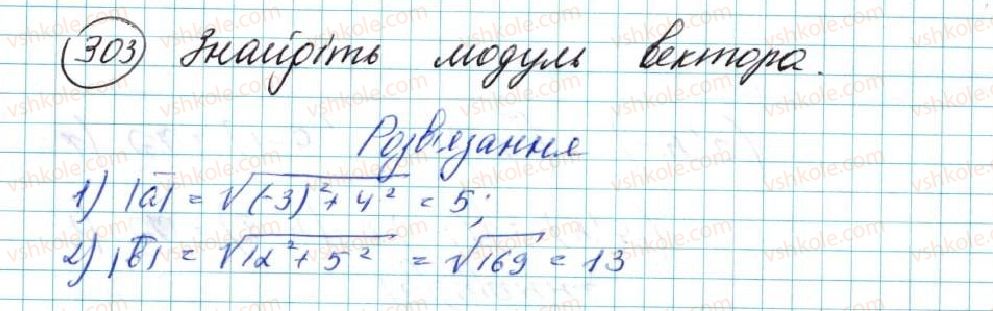 303 Знайдіть модуль вектора.
Розв'язання
1) |a̅| = √((-3)² + 4²) = 5;
2) |b̅| = √(12² + 5²) = √169 = 13